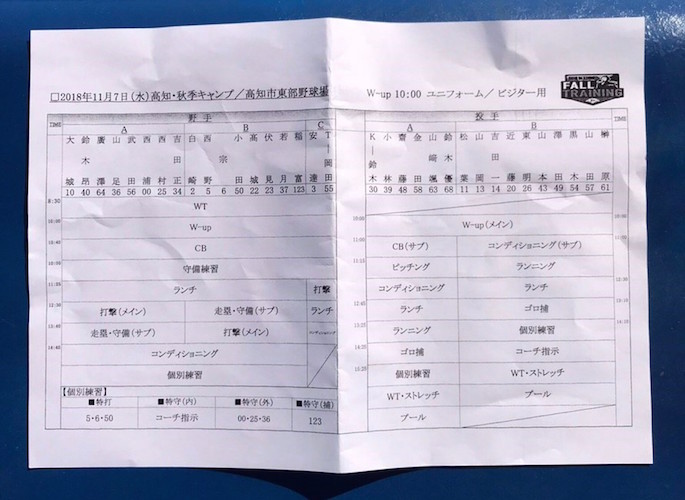 □2018年11月7日(水)高知・秋季キャンプ／高知市東部野球場 W-up 10:00 ユニフォーム／ビジター用
FALL TRAINING
TIME 野手
A B C
大城 鈴木昂 廣澤 山足 武田 西浦 西村 吉田正 白崎 西野 小田 宗 高城 伏見 若月 稲富 安達 T-岡田
10 40 64 36 56 00 25 34 2 5 6 50 22 23 37 123 3 55
8:30 WT
10:00 W-up
10:40 CB
守備練習
ランチ 打撃
打撃(メイン) 走塁・守備(サブ) ランチ
走塁・守備(サブ) 打撃(メイン) コンディショニング
14:40 コンディショニング
個別練習
【個別練習】
■特打 ■特守(内) ■特守(外) ■特守(捕)
5・6・50 コーチ指示 00・25・36 123
TIME 投手 TIME
A B
K-鈴木 小林 齋藤 金田 山﨑颯 鈴木優 松葉 山岡 吉田一 近藤 東明 山本 澤田 黒木 山田 榊原
30 39 48 58 63 68 11 13 14 20 26 43 49 54 57 61
10:00 W-up(メイン) 10:00
11:00 CB(サブ) コンディショニング(サブ)
ピッチング ランニング
コンディショニング ランチ
ランチ ゴロ捕
ランニング 個別練習
ゴロ捕 コーチ指示
15:20 個別練習 WT・ストレッチ
WT・ストレッチ プール
プール